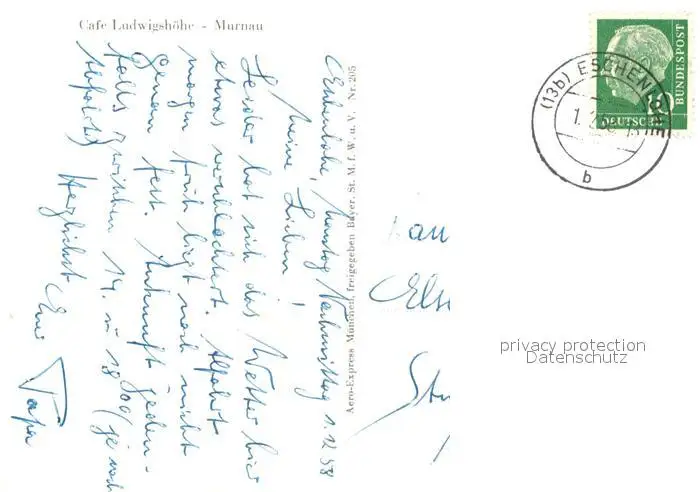 Cafe Ludwigshöhe - Murnau
Eschenlohe, Nachmittag 1.12.58
Meine Lieben!
Leider hat sich das Wetter hier
etwas verschlechtert. Abfahrt
morgen früh liegt noch nicht
genau fest. Ankunft jeden-
falls zwischen 14. u 18.00/je nach
Abfahrt
Herzlichst Euer
Papa
Aero-Express München, freigegeben Bayer. St. M. f. W. u. V. Nr. 205
(13b) ESCHENLOHE
b
DEUTSCHE
BUNDESPOST
10
Else
privacy protection
Datenschutz